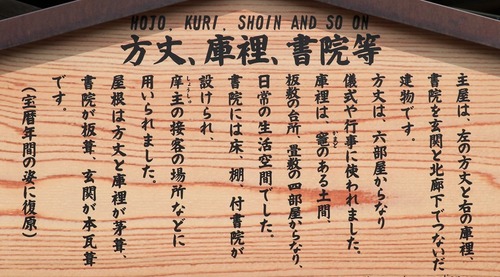 HOJO. KURI. SHOIN AND SO ON
方丈、庫裡、書院等
主屋は、左の方丈と右の庫裡、
書院を玄関と北廊下でつないだ
建物です。
方丈は、六部屋からなり
儀式や行事に使われました。
庫裡は、竈のある土間、
板敷の台所、畳敷の四部屋からなり、
日常の生活空間でした。
書院には床、棚、付書院が
設けられ、
庠主の接客の場所などに
用いられました。
屋根は方丈と庫裡が茅葺、
書院が板葺、玄関が本瓦葺
です。
(宝暦年間の姿に復原)